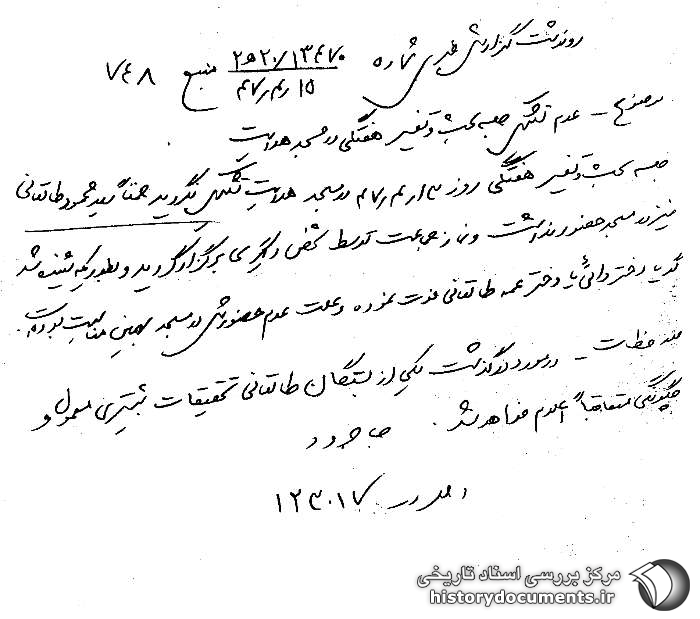 رونوشت گزارش خبری شماره ۲۵۲۰/۱۳۴۷۰ منبع ۷۴۸
۱۵/۴/۴۷
موضوع - عدم تشکیل جلسه بحث و تفسیر هفتگی در مسجد هدایت
جلسه بحث و تفسیر هفتگی روز ۱۳/۴/۴۷ در مسجد هدایت تشکیل نگردید ضمناً سید محمود طالقانی
نیز در مسجد حضور نداشت و نماز جماعت توسط شخص دیگری برگزار گردید و بطوریکه شنیده شد
گویا دختر دائی یا دختر عمه طالقانی فوت نموده و علت عدم حضورش در مسجد بهمین مناسبت بوده است.
ملاحظات - در مورد درگذشت یکی از بستگان طالقانی تحقیقات بیشتری معمول و
چگونگی متعاقباً اعلام خواهد شد.
۱۲۳۰۱۷
مرکز بررسی اسناد تاریخی
historydocuments.ir